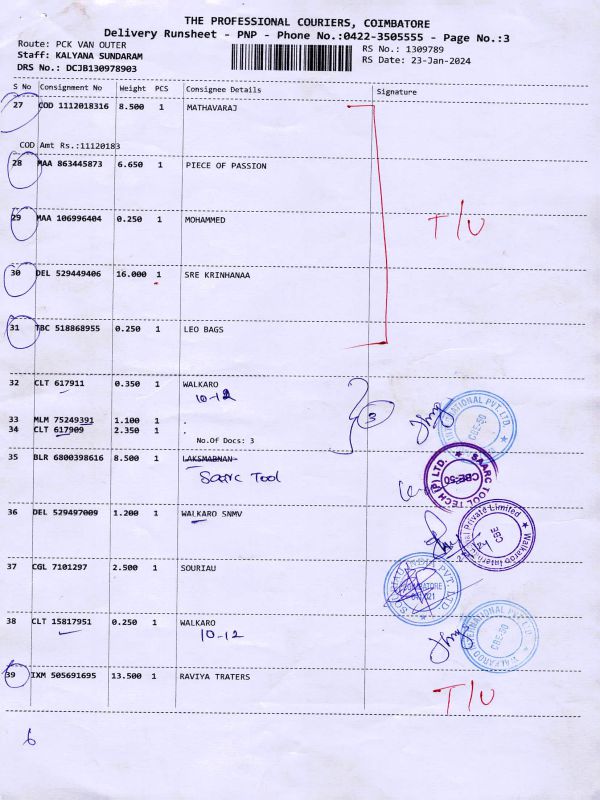 THE PROFESSIONAL COURIERS, COIMBATORE
Delivery Runsheet - PNP - Phone No.:0422-3505555 - Page No.:3
Route: PCK VAN OUTER
RS No.: 1309789
Staff: KALYANA SUNDARAM
RS Date: 23-Jan-2024
DRS No.: DCJB130978903
S No Consignment No Weight PCS Consignee Details Signature
27 COD 1112018316 8.500 1 MATHAVARAJ
COD Amt Rs.:11120183
28 MAA 863445873 6.650 1 PIECE OF PASSION
29 MAA 106996404 0.250 1 MOHAMMED
T/U
30 DEL 529449406 16.000 1 SRE KRINHANAA
31 TBC 518868955 0.250 1 LEO BAGS
32 CLT 617911 0.350 1 WALKARO
10-12
33 MLM 75249391 1.100 1 .
3
34 CLT 617909 2.350 1 .
No.Of Docs: 3
CBE-50
35 BLR 6800398616 8.500 1 LAKSMABNAN
Saarc Tool
SAARC TOOL TECH (P) LTD. CBE-50
36 DEL 529497009 1.200 1 WALKARO SNMV
Private Limited Walkaroo CBE
37 CGL 7101297 2.500 1 SOURIAU
PVT. LTD
38 CLT 15817951 0.250 1 WALKARO
10-12
WALKAROO INTERNATIONAL PVT LTD. CBE-50
39 IXM 505691695 13.500 1 RAVIYA TRATERS
T/U
6